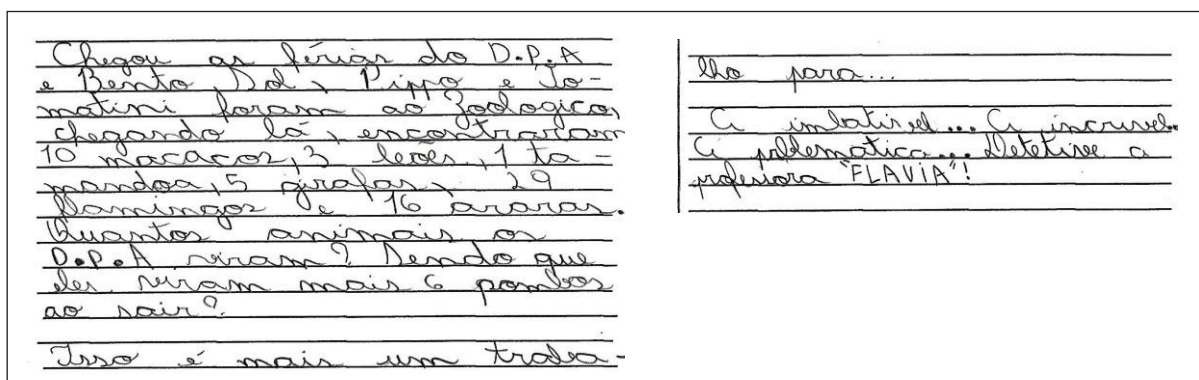 Chegou as férias do D.P.A
e Bento, Sol, Pippo e To-
matini foram ao Zoologico,
chegando lá, encontraram
10 macacos, 3 leões, 1 ta-
mandoa, 5 girafas, 29
flamingos e 16 araras.
Quantos animais os
D.P.A viram? Sendo que
eles viram mais 6 pombos
ao sair?
Isso é mais um traba-
lho para...
A imbativel... A incrivel...
A problematica... Detetive a
professora "FLAVIA"!